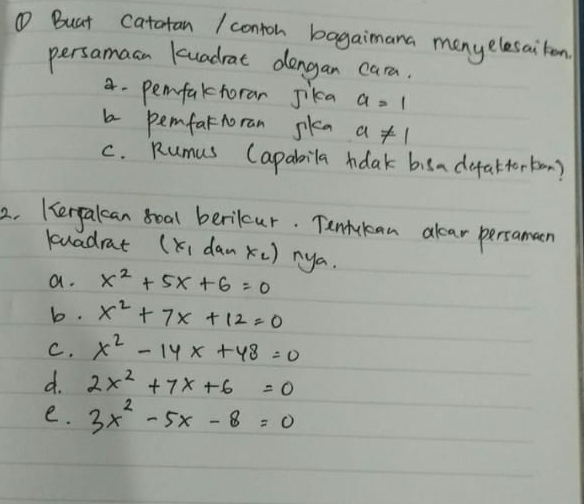 ① Buat Catatan / contoh bagaimana menyelesaikan
persamaan kuadrat dengan cara.
a. pemfaktoran jika a = 1
b pemfaktoran jika a ≠ 1
c. Rumus (apabila tidak bisa difaktorkan)
2. Kerjakan soal berikut. Tentukan akar persamaan
kuadrat (x₁ dan x₂) nya.
a. x² + 5x + 6 = 0
b. x² + 7x + 12 = 0
c. x² - 14x + 48 = 0
d. 2x² + 7x + 6 = 0
e. 3x² - 5x - 8 = 0